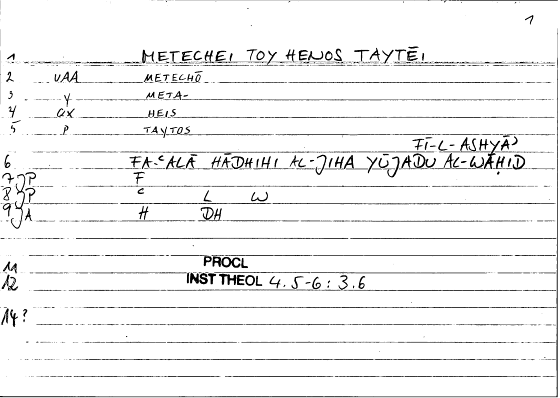 1
1 METECHEI TOY HENOS TAYTĒI
2 VAA METECHŌ
3 Y META-
4 GX HEIS
5 P TAYTOS
FĪ-L-ASHYĀʾ
6 FA-ʿALĀ HĀDHIHI AL-JIHA YŪJADU AL-WĀḤID
7 JP F
8 JP ʿ L W
9 JA H DH
11 PROCL
12 INST THEOL 4.5-6: 3.6
14?